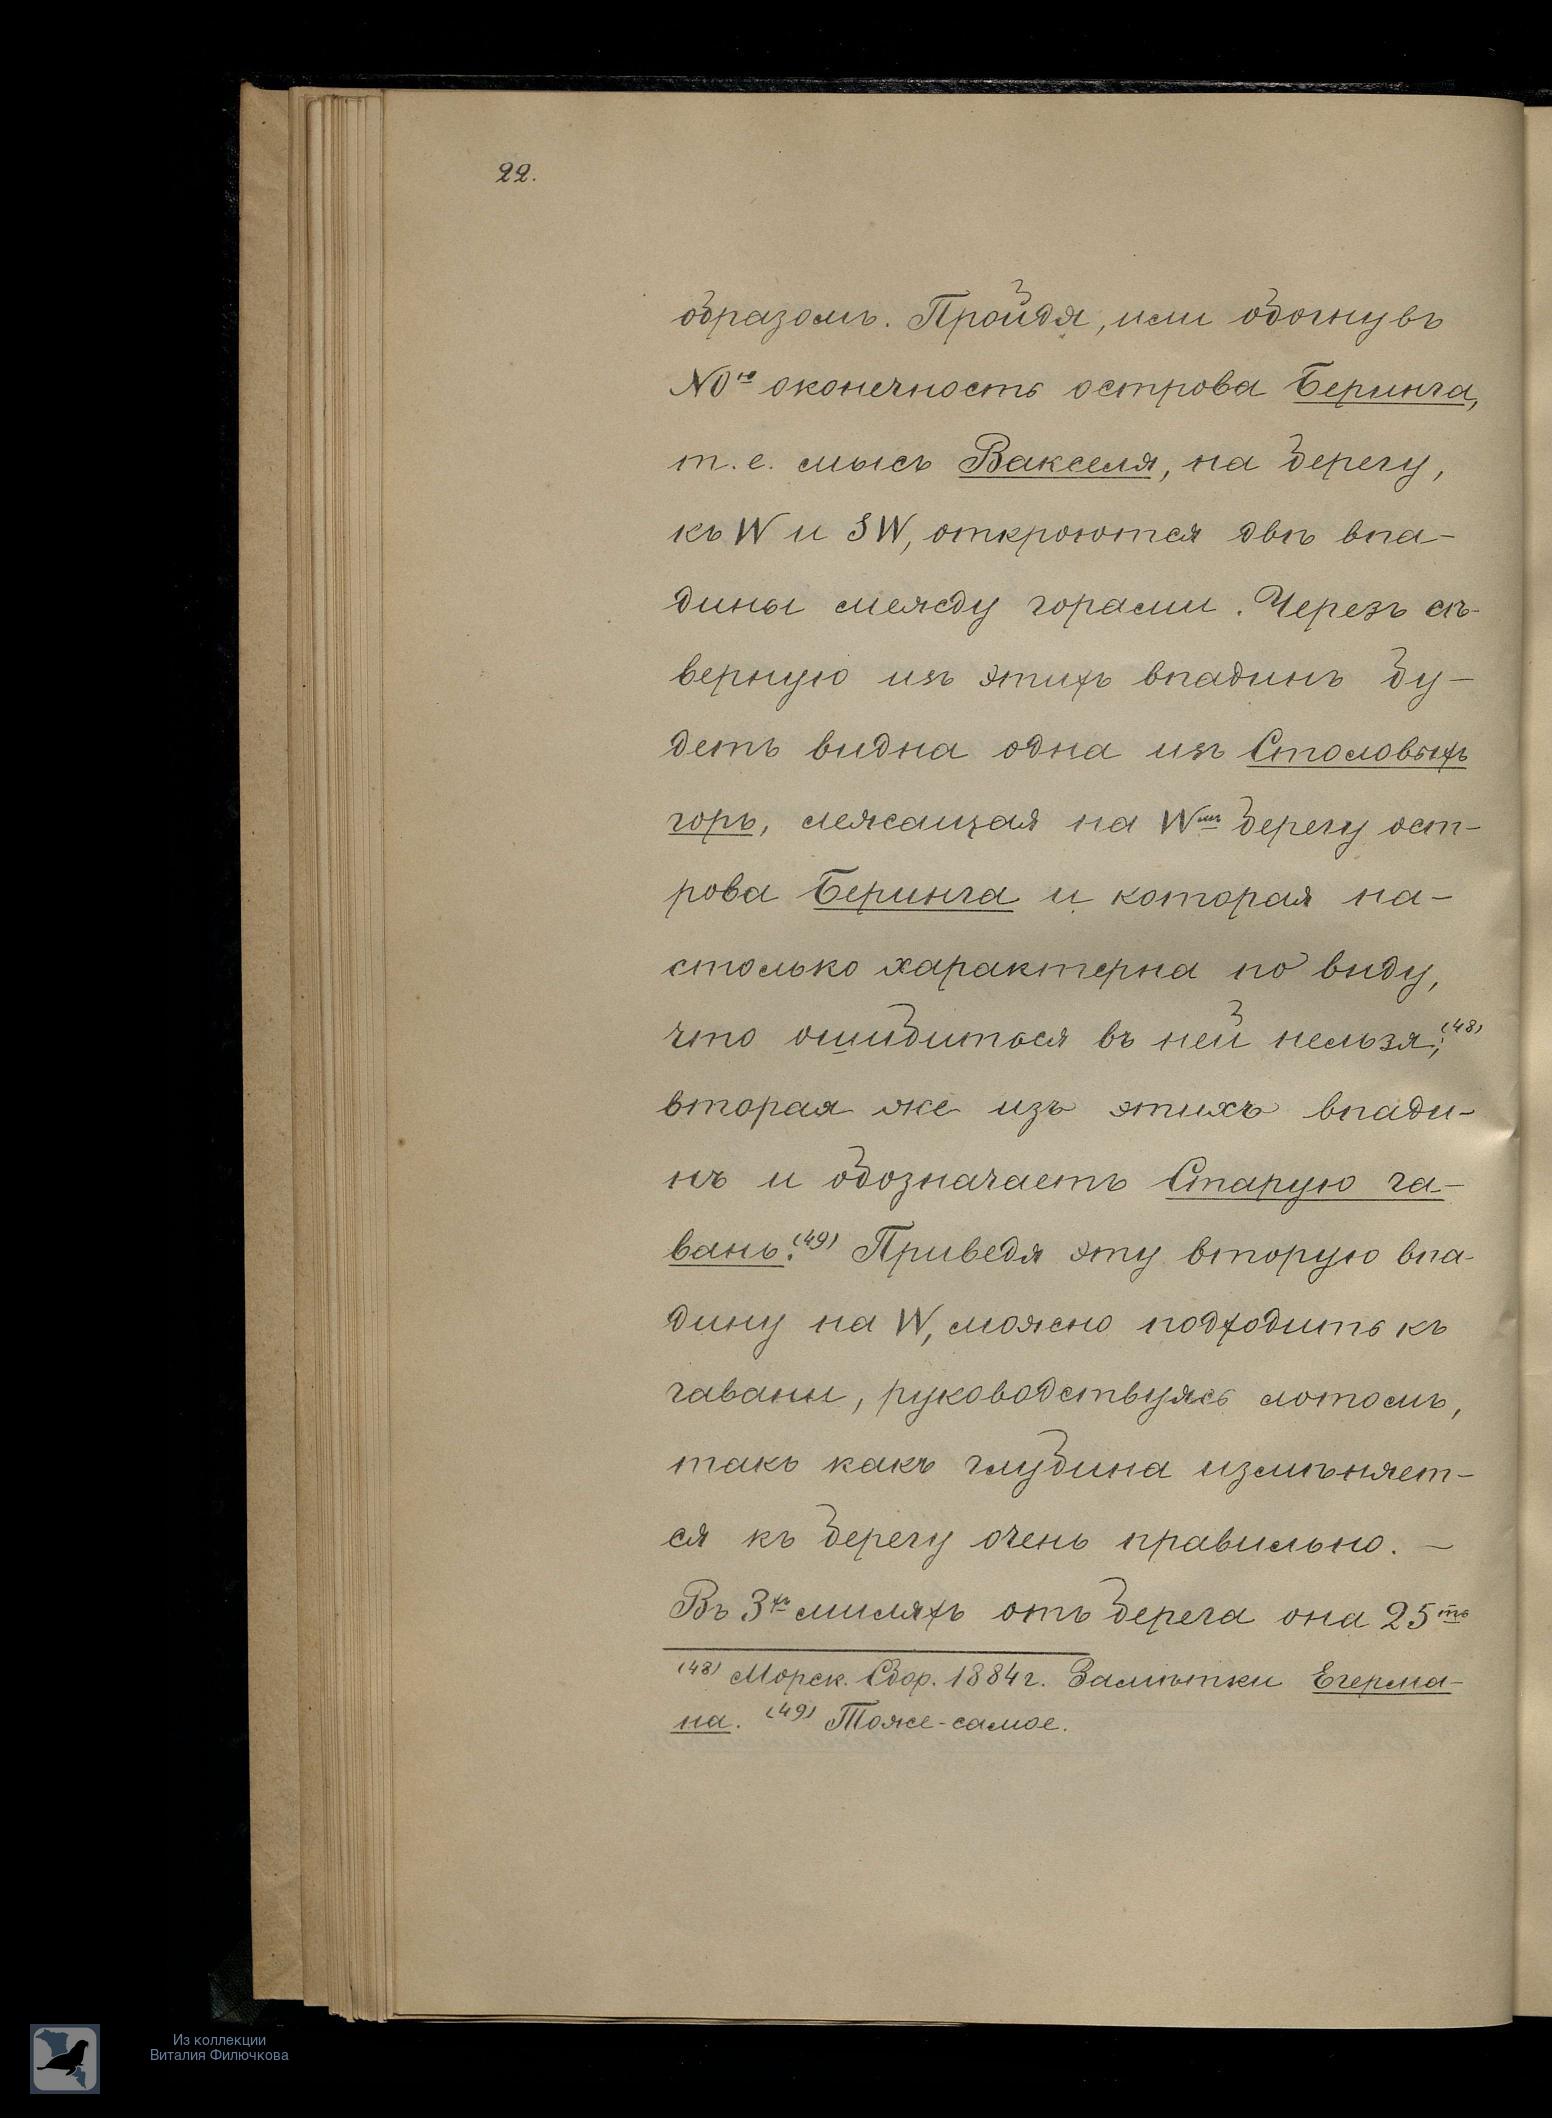 22.
образомъ. Пройдя, или обогнувъ
NOю оконечность острова Беринга,
т.е. мысъ Вакселя, на берегу,
къ W и SW, откроются двѣ впа-
дины между горами. Черезъ сѣ-
верную изъ этихъ впадинъ бу-
детъ видна одна изъ Столовыхъ
горъ, лежащая на Wмъ берегу ост-
рова Беринга и которая на-
столько характерна по виду,
что ошибиться въ ней нельзя;(48)
вторая же изъ этихъ впади-
нъ и обозначаетъ Старую га-
вань.(49) Приведя эту вторую впа-
дину на W, можно подходить къ
гавани, руководствуясь лотомъ,
такъ какъ глубина измѣняет-
ся къ берегу очень правильно. —
Въ 3хъ миляхъ отъ берега она 25ть
(48) Морск. Сбор. 1884 г. Замѣтки Егерма-
на. (49) Тоже-самое.
Из коллекции
Виталия Филючкова